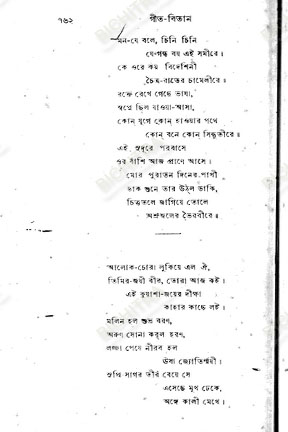 ৭৬২
গীত-বিতান
মন-যে বলে, চিনি চিনি
যে-গন্ধ বয় এই সমীরে॥
কে ওরে কয় বিদেশিনী
চৈত্র-রাতের চামেলীরে॥
রক্তে রেখে গেছে ভাষা,
স্বপ্নে ছিল যাওয়া-আসা,
কোন্ যুগে কোন্ হাওয়ার পথে
কোন্ বনে কোন্ সিন্ধুতীরে॥
এই সুদূরে পরবাসে
ওর বাঁশি আজ প্রাণে আসে।
মোর পুরাতন দিনের পাখী
ডাক শুনে তার উঠল ডাকি,
চিত্ততলে জাগিয়ে তোলে
অশ্রুজলের ভৈরবীরে॥
আলোক-চোরা লুকিয়ে এল ঐ,
তিমির-জয়ী বীর, তোরা আজ কই।
এই কুয়াশা-জয়ের দীক্ষা
কাহার কাছে লই।
মলিন হল শুভ্র বরণ,
অরুণ সোনা করল হরণ,
লজ্জা পেয়ে নীরব হল
ঊষা জ্যোতির্ময়ী।
সুপ্তি-সাগর তীর বেয়ে সে
এসেছে মুখ ঢেকে,
অঙ্গে কালী মেখে।